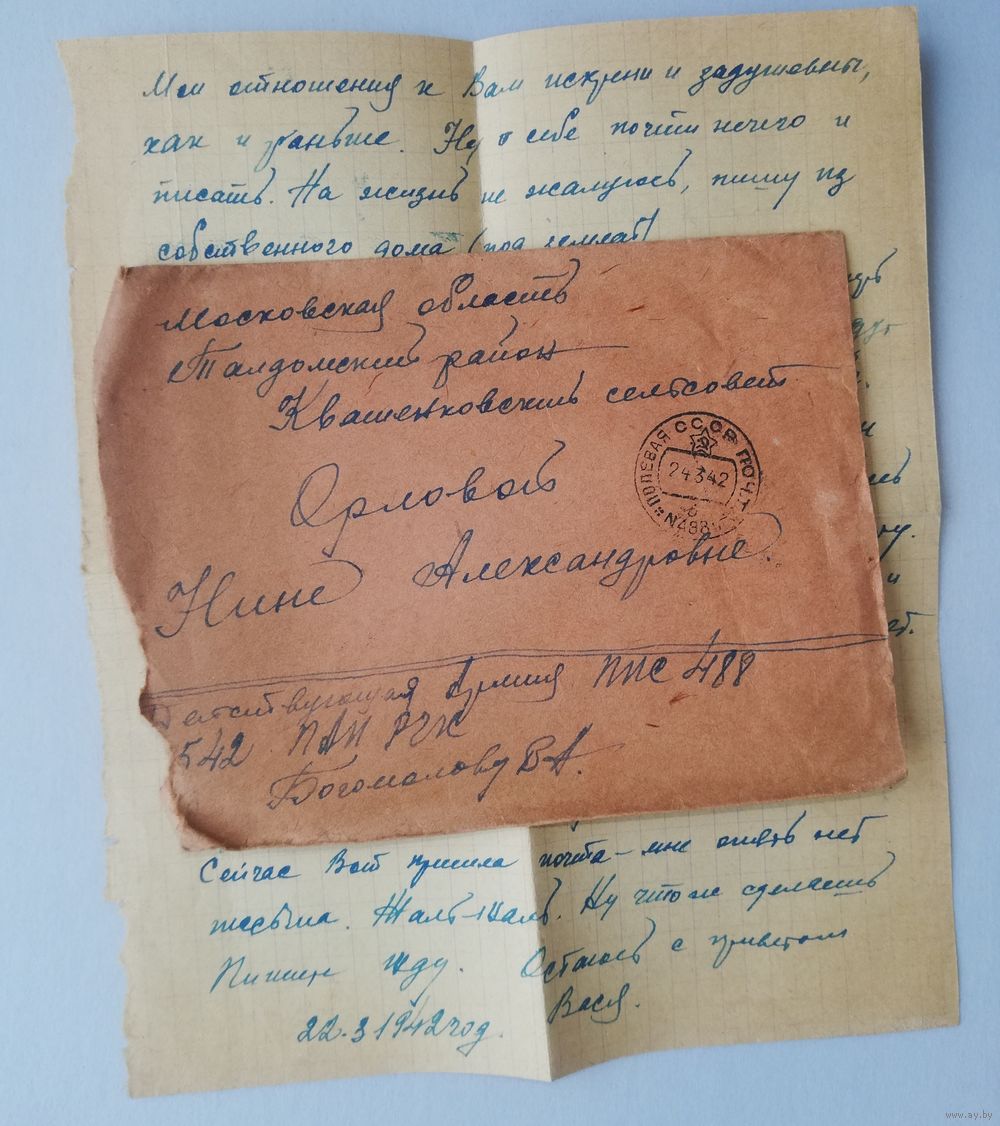 Мои отношения к Вам искренни и задушевны,
как и раньше. Ну о себе почти нечего и
писать. На жизнь не жалуюсь, пишу из
собственного дома (под землей)
Московская область
Талдомский район
Квашенковский сельсовет
Орловой
Нине Александровне.
ПОЛЕВАЯ СССР ПОЧТ
24342
N488
Действующая Армия ППС 488
542 ПАП РГК
Богомолову В А.
Сейчас Вот пришла почта – мне опять нет
письма. Жаль-жаль. Ну что ж сделаешь
Пишите жду. Остаюсь с приветом
Вася.
22.3 1942 год.
www.ay.by